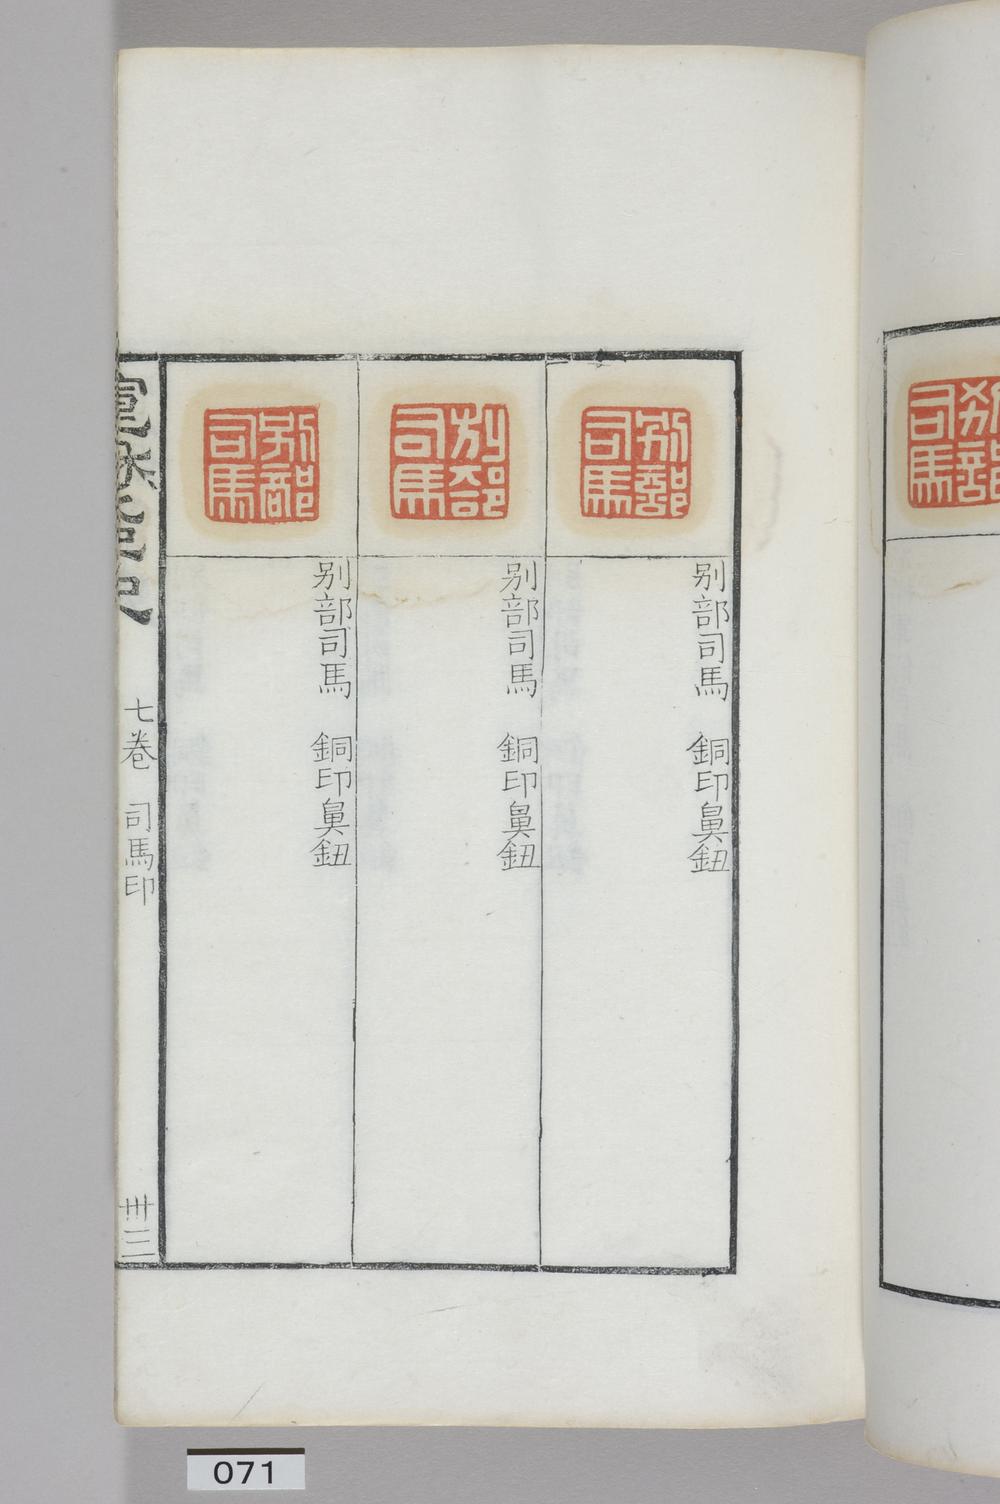 別部司馬
別部司馬　銅印鼻鈕
別部司馬
別部司馬　銅印鼻鈕
別部司馬
別部司馬　銅印鼻鈕
七卷　司馬印
卅三
071